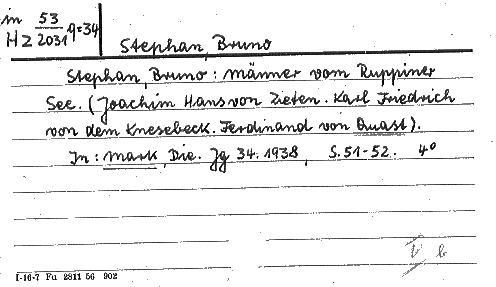 in 53
Hz 2031 q=34
Stephan, Bruno
Stephan, Bruno: Männer vom Ruppiner
See. (Joachim Hans von Zieten. Karl Friedrich
von dem Knesebeck. Ferdinand von Quast).
In: Mark, Die. Jg 34. 1938, S. 51-52. 4°
b
I-16-7 Fu 2811 56 902